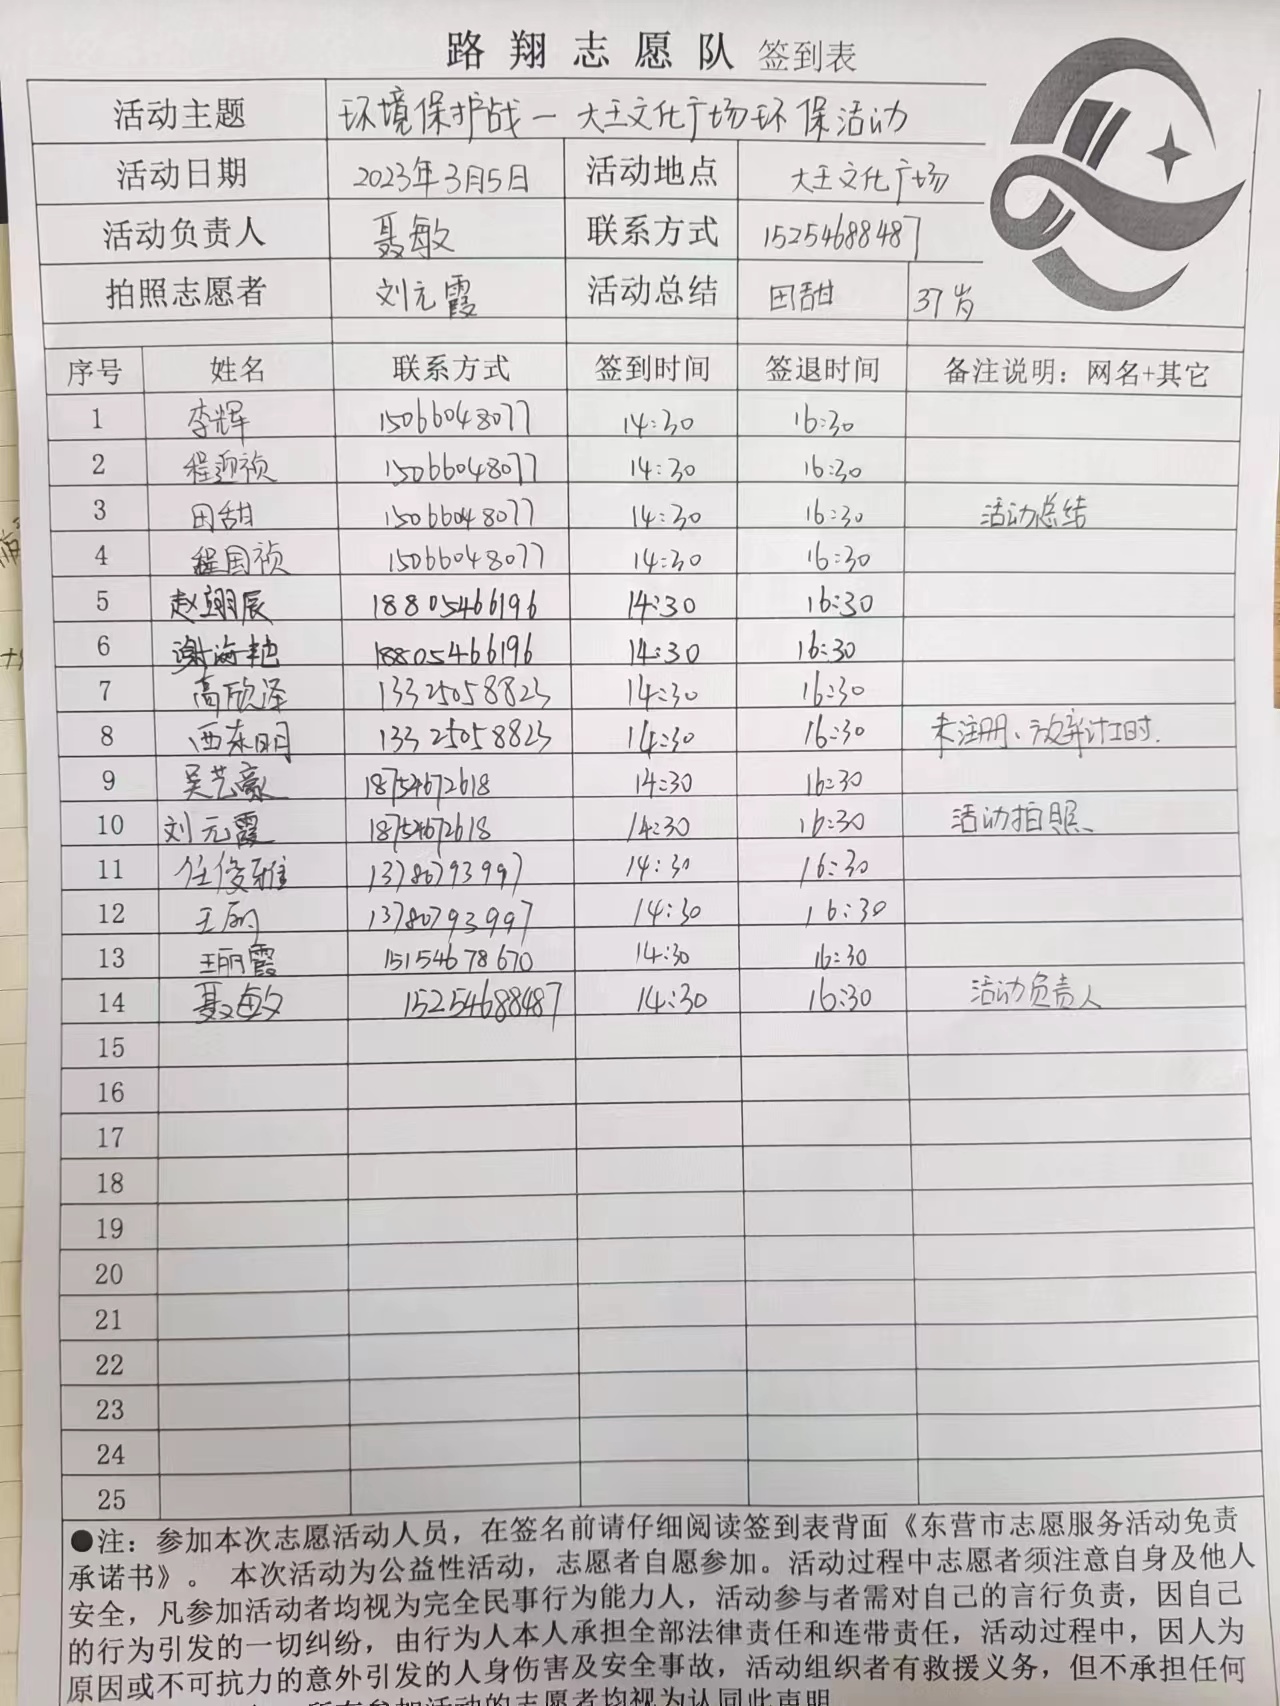 路翔志愿队 签到表
活动主题 环境保护战一大王文化广场环保活动
活动日期 2023年3月5日 活动地点 大王文化广场
活动负责人 聂敏 联系方式 15254688487
拍照志愿者 刘元霞 活动总结 田甜 37岁
序号 姓名 联系方式 签到时间 签退时间 备注说明：网名+其它
1 李辉 15066048077 14:30 16:30
2 程迎祯 15066048077 14:30 16:30
3 田甜 15066048077 14:30 16:30 活动总结
4 程国祯 15066048077 14:30 16:30
5 赵翊辰 18805466196 14:30 16:30
6 谢海艳 18805466196 14:30 16:30
7 高欣泽 13325058823 14:30 16:30
8 西东明 13325058823 14:30 16:30 未注册、放弃计工时.
9 吴艺豪 18754672618 14:30 16:30
10 刘元霞 18754672618 14:30 16:30 活动拍照
11 任俊雅 13780793997 14:30 16:30
12 王 13780793997 14:30 16:30
13 王丽霞 15154678670 14:30 16:30
14 聂敏 15254688487 14:30 16:30 活动负责人
15
16
17
18
19
20
21
22
23
24
25
●注：参加本次志愿活动人员，在签名前请仔细阅读签到表背面《东营市志愿服务活动免责
承诺书》。 本次活动为公益性活动，志愿者自愿参加。活动过程中志愿者须注意自身及他人
安全，凡参加活动者均视为完全民事行为能力人，活动参与者需对自己的言行负责，因自己
的行为引发的一切纠纷，由行为人本人承担全部法律责任和连带责任，活动过程中，因人为
原因或不可抗力的意外引发的人身伤害及安全事故，活动组织者有救援义务，但不承担任何
所有参加活动的志愿者均视为认同此声明